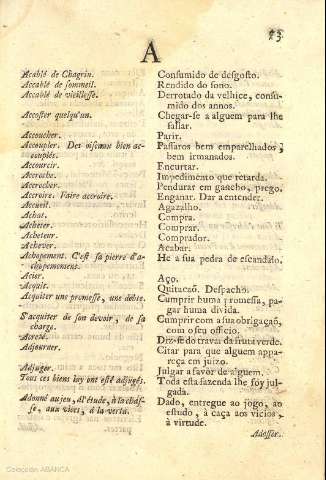 73
A
Acablé de Chagrin. Consumido de desgosto.
Accablé de sommeil. Rendido do sono.
Accablé de vieillesse. Derrotado da velhice, consu-
mido dos annos.
Accoster quelqu'un. Chegar-se a alguem para lhe
fallar.
Accoucher. Parir.
Accoupler. Des oiseaux bien ac- Passaros bem emparelhados,
couplés. bem irmanados.
Accourcir. Encurtar.
Accroche. Impedimento que retarda.
Accrocher. Pendurar em gancho, prego.
Accroire. Faire accroire. Enganar. Dar a entender.
Accueil. Agazalho.
Achat. Compra.
Acheter. Comprar.
Acheteur. Comprador.
Achever. Acabar.
Achopement. C'est sa pierre d'a- He a sua pedra de escandalo.
chopemiment.
Acier. Aço.
Acquit. Quitaçaõ. Despacho.
Acquiter une promesse, une débte. Cumprir huma promessa, pa-
gar huma divida.
S'acquiter de son devoir, de sa Cumprir com a sua obrigaçaõ,
charge. com o seu officio.
Acreté. Diz-se do travar da fruta verde.
Adjourner. Citar para que alguem appa-
reça em juizo.
Adjuger. Julgar a favor de alguem.
Tous ces biens luy ont esté adjugés. Toda esta fazenda lhe foy jul-
gada.
Adonné au jeu, à l'étude, à la chas- Dado, entregue ao jogo, ao
se, aux vices, à la vertu. estudo, à caça aos vicios,
à virtude.
Adosser.
Colección ABANCA